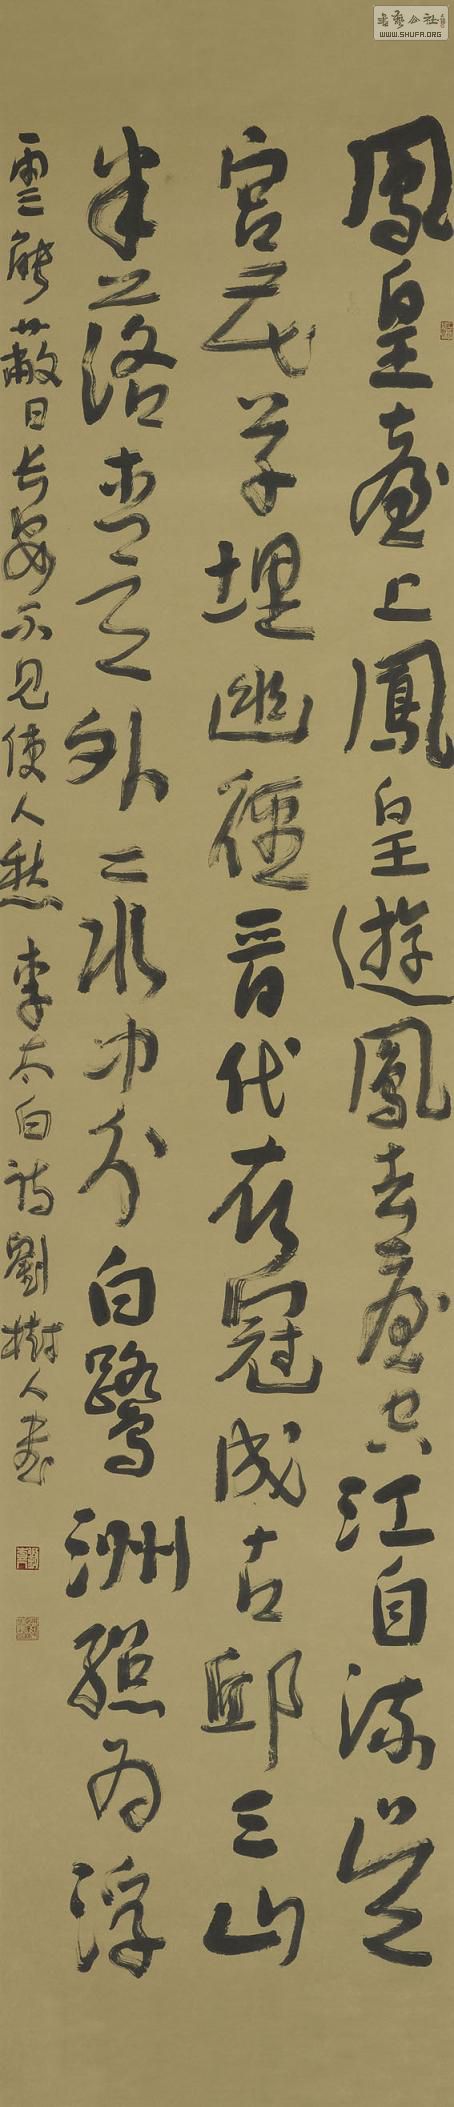 鳳皇臺上鳳皇遊鳳去臺空江自流吳
宮花草埋幽徑晉代衣冠成古邱三山
半落青天外二水中分白鷺洲總為浮
雲能蔽日長安不見使人愁 李太白詩 劉樹人書
書藝公社
WWW.SHUFA.ORG